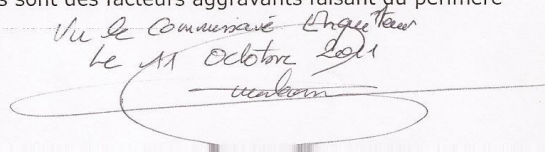 s sont des facteurs aggravants faisant du périmètre
Vu le Commissaire Enquêteur
Le 11 Octobre 2021